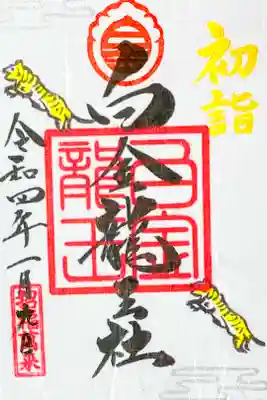 初詣
白金龍王社
白金
龍王
令和四年一月